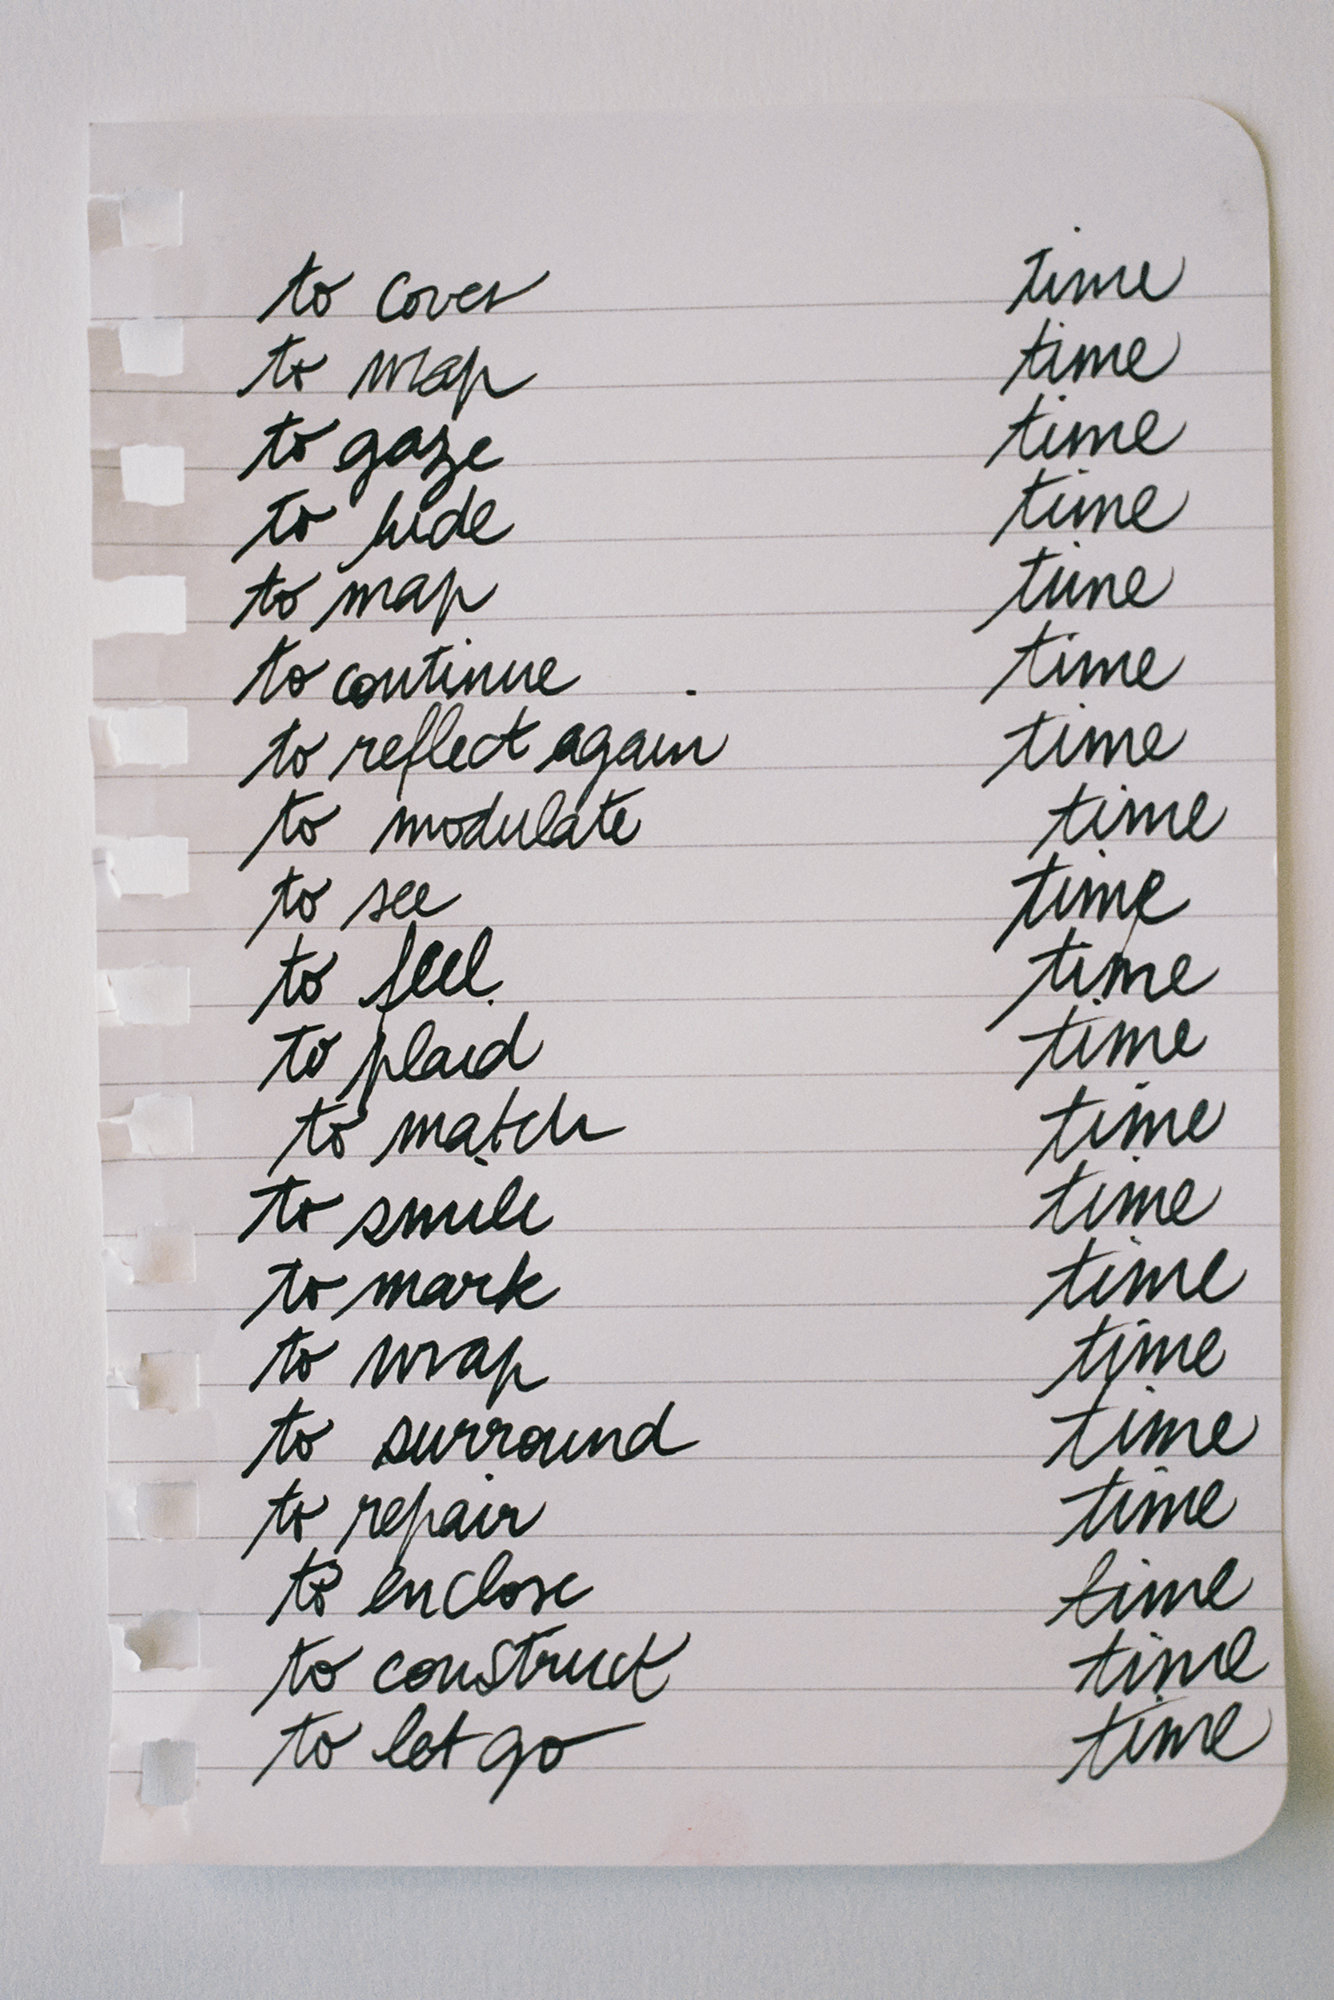 to cover time
to wrap time
to gaze time
to hide time
to map time
to continue time
to reflect again time
to modulate time
to see time
to feel time
to plaid time
to match time
to smile time
to mark time
to wrap time
to surround time
to repair time
to enclose time
to construct time
to let go time